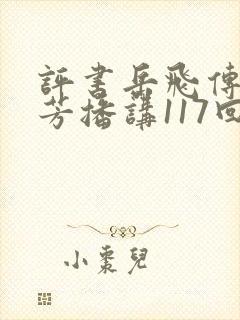 評書岳飛傳
芳播講117回
小棗兒